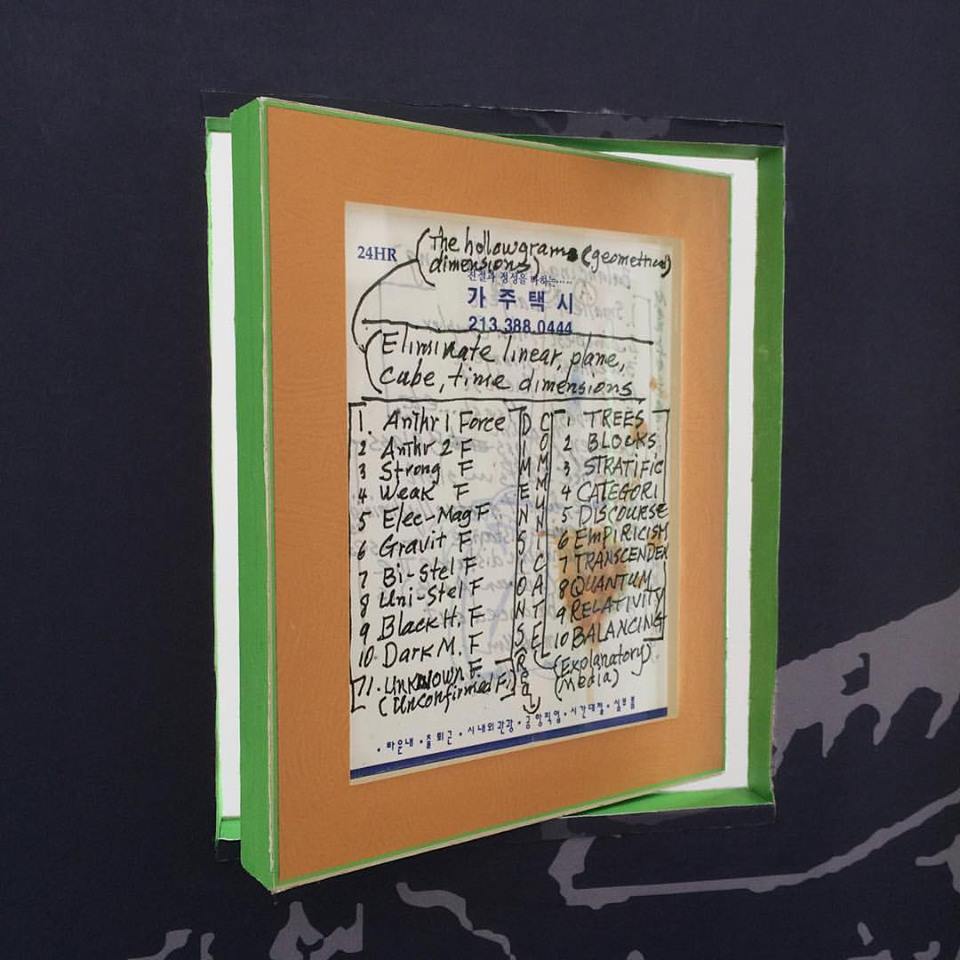 24HR
(The hollowgrams (geometrical)
dimensions)
친절과 정성을 다하는.....
가주택시
213.388.0444
(Eliminate linear, plane,
Cube, time dimensions
1. Anthr 1 Force
2 Anthr 2 F
3 Strong F
4 Weak F
5 Elec-Mag F.
6 Gravit F
7 Bi-stel F
8 Uni-stel F
9 Black H. F
10. Dark M. F
11. Unknown F.
(Unconfirmed F.)
DIMENSIONS
COMMUNICATE
1 TREES
2 BLOCKS
3 STRATIFIC
4 CATEGORI
5 DISCOURSE
6 EMPIRICISM
7 TRANSCENDEN
8 QUANTUM
9 RELATIVITY
10 BALANCING
(Explanatory)
(Media)
• 타운내 • 출퇴근 • 시내외관광 • 공항픽업 • 시간대절 • 심부름